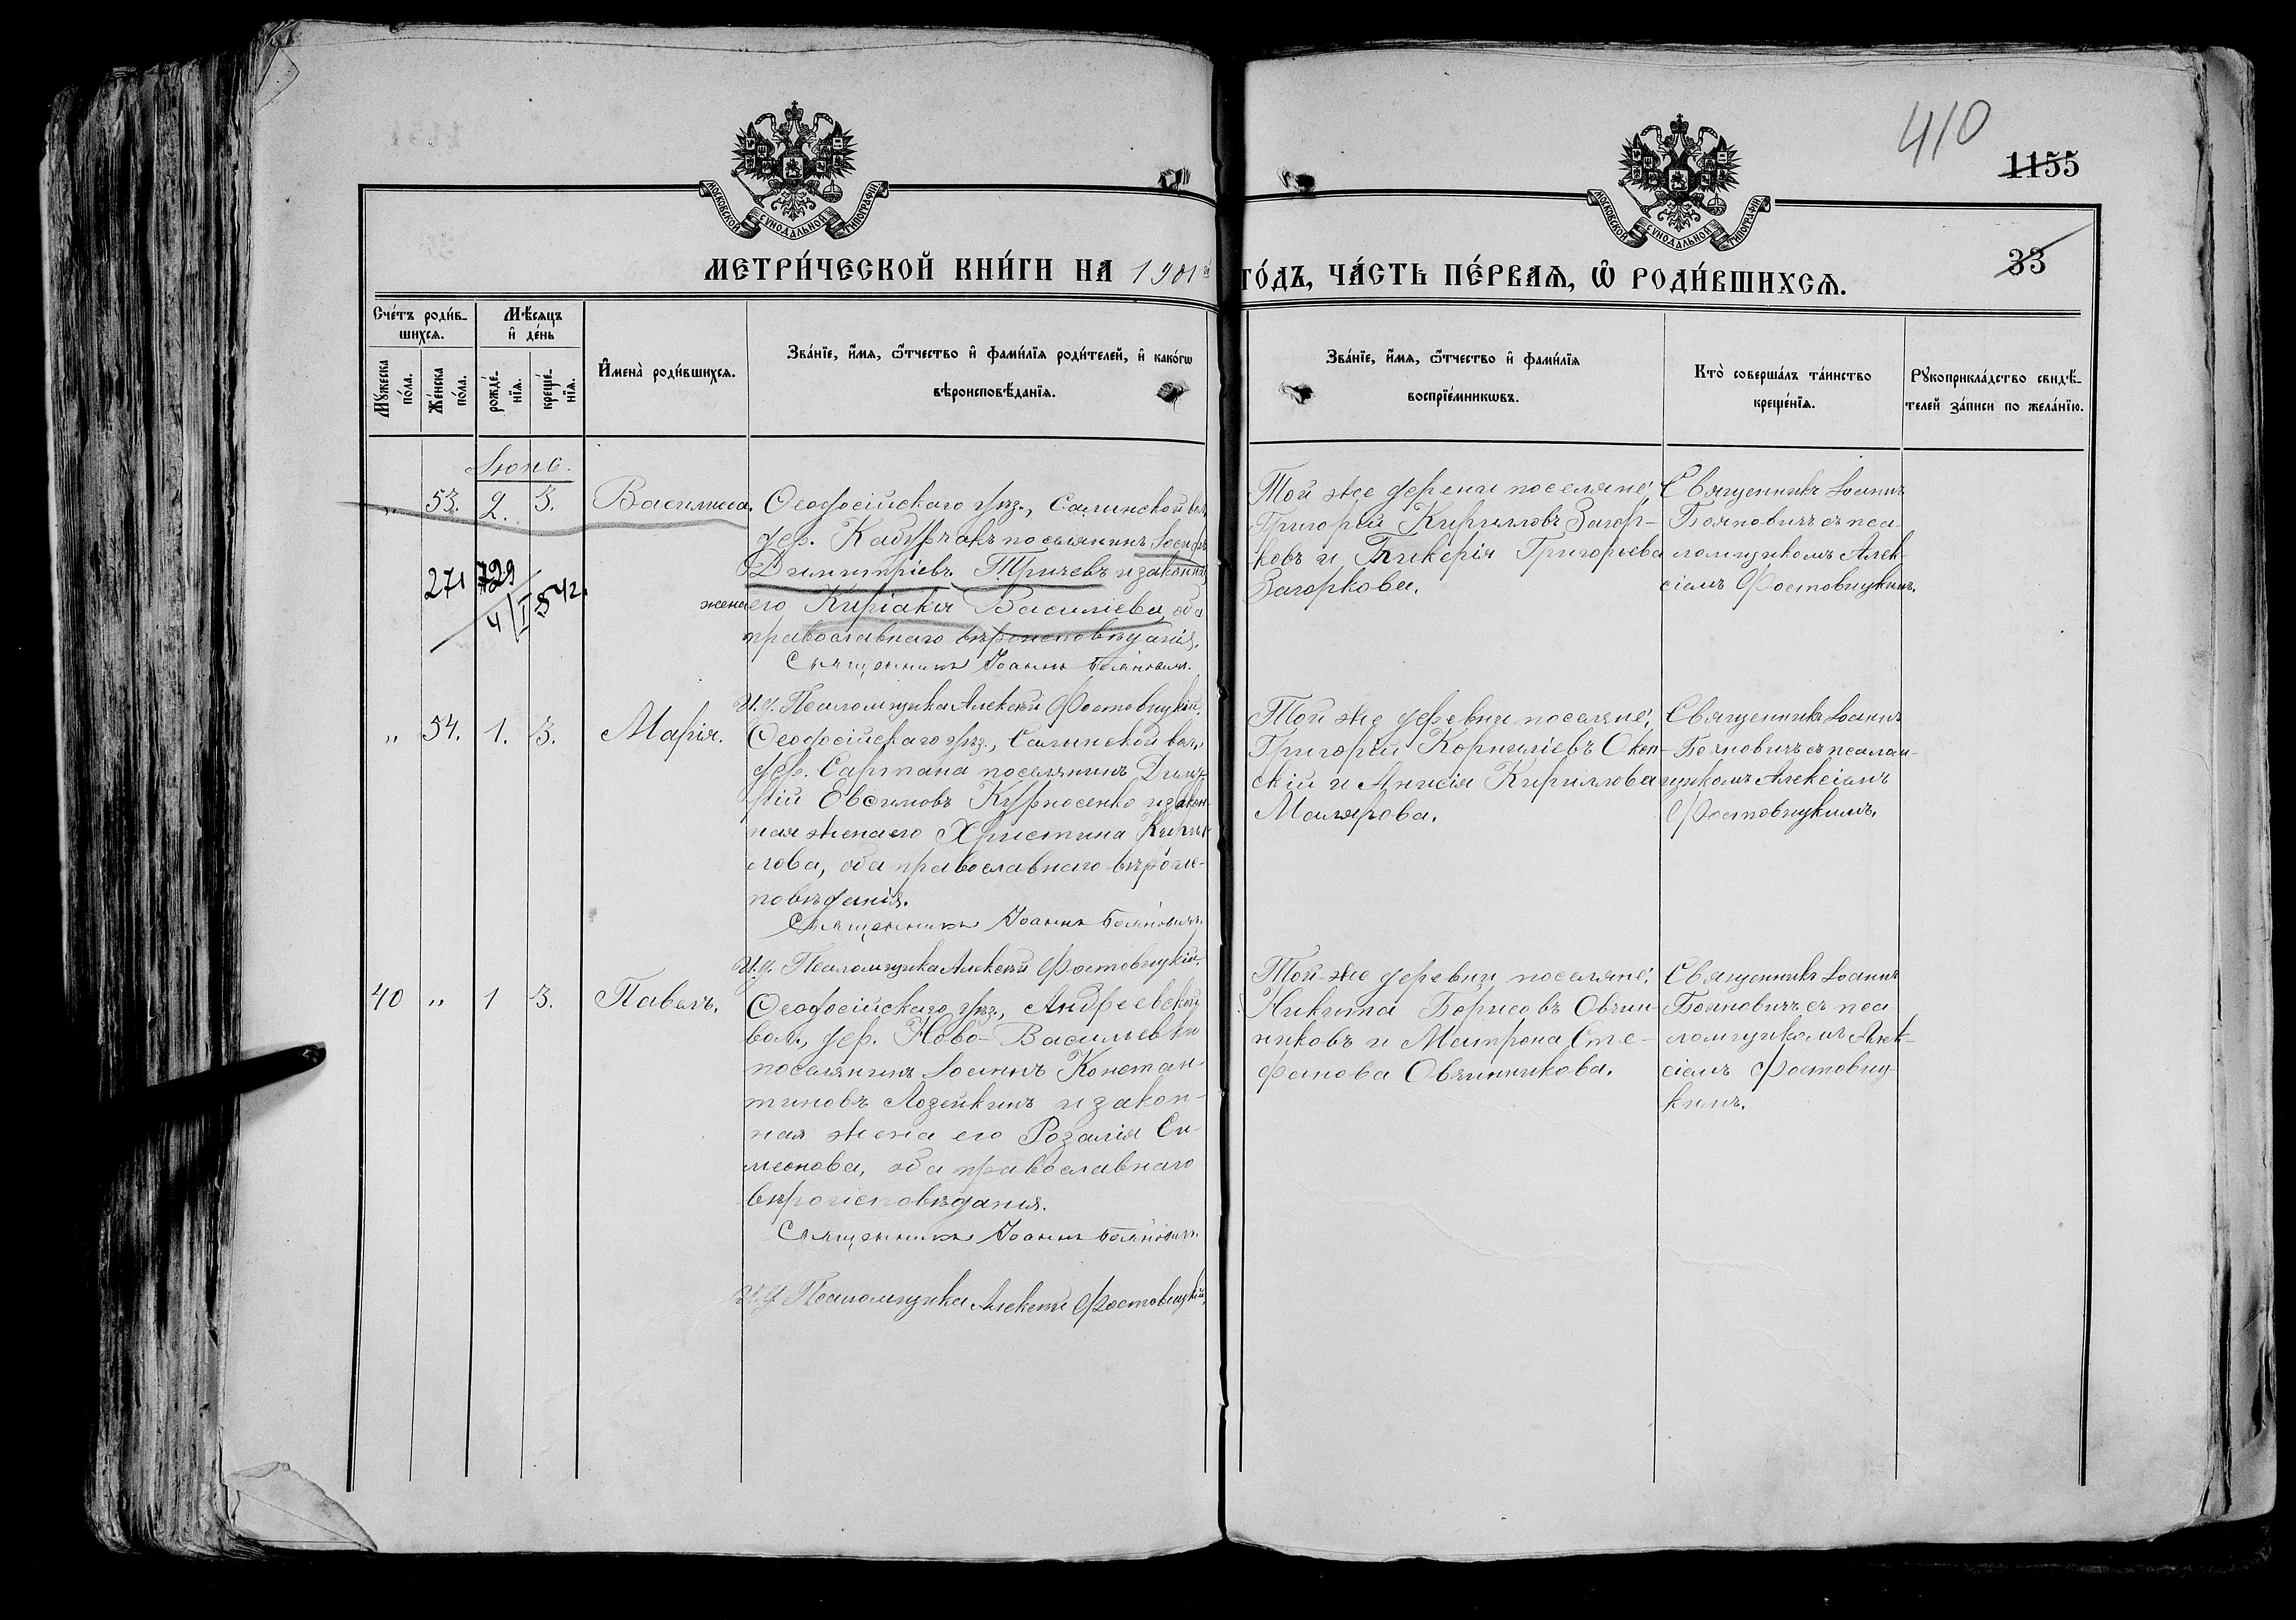 410
1155
33
МОСКОВСКОЙ СѴНОДАЛЬНОЙ ТИПОГРАФІИ
МОСКОВСКОЙ СѴНОДАЛЬНОЙ ТИПОГРАФІИ
МЕТРИ́ЧЕСКОЙ КНИ́ГИ НА 1901й ГО́ДЪ, ЧА́СТЬ ПЕ́РВАѦ, Ѡ҆ РОДИ́ВШИХСѦ.
Сче́тъ роди́в-
шихсѧ.
Мꙋ́жеска по́ла.
Же́нска по́ла.
Мѣ́сѧцъ
и҆ де́нь
рожде́-
нїѧ.
креще́-
нїѧ.
И҆мена̀ роди́вшихсѧ.
Зва́нїе, и҆́мѧ, ѻ҆́тчество и҆ фами́лїѧ роди́телей, и҆ како́гѡ
вѣроисповѣ́данїѧ.
Зва́нїе, и҆́мѧ, ѻ҆́тчество и҆ фами́лїѧ
воспрїе́мникѡвъ.
Кто̀ соверша́лъ та́инство
креще́нїѧ.
Рꙋкоприкла́дство свидѣ́-
телей за́писи по жела́нїю.
Іюнь.
„ 53. 2. 3. Василиса.
271 729
4/I 542.
Ѳеодосійскаго уѣз., Салинской вол.
дер. Кадурчакъ поселянинъ Іосифъ
Димитріевъ Тричевъ и законная
жена его Киріакія Василіева, оба
православнаго вѣроисповѣданія.
Священникъ Іоаннъ Бояновичъ.
И. д. Псаломщика Алексѣй Фостовицкій.
Той же деревни поселяне:
Григорій Кирилловъ Загор-
ковъ и Гликерія Григорьева
Загоркова.
Священникъ Іоаннъ
Бояновичъ съ пса
ломщикомъ Алек-
сіемъ Фостовицкимъ.
„ 54. 1. 3. Марія.
Ѳеодосійскаго уѣз., Салинской вол.,
дер. Сартана поселянинъ Димит-
рій Овсимовъ Курносенко и закон-
ная жена его Христина Кирил-
лова, оба православнаго вѣроис-
повѣданія.
Священникъ Іоаннъ Бояновичъ.
И. д. Псаломщика Алексѣй Фостовицкій.
Той же деревни поселяне:
Григорій Корниліевъ Окоп-
скій и Анисія Кириллова
Малярова.
Священникъ Іоаннъ
Бояновичъ съ псалом-
щикомъ Алексіемъ
Фостовицкимъ.
40 „ 1 3. Павелъ.
Ѳеодосійскаго уѣз., Андреевской
вол., дер. Ново-Васильевки
поселянинъ Іоаннъ Констан-
тиновъ Лозейкинъ и закон-
ная жена его Розалія Си-
меонова, оба православнаго
вѣроисповѣданія.
Священникъ Іоаннъ Бояновичъ.
И. д. Псаломщика Алексѣй Фостовицкій.
Той-же деревни поселяне:
Никита Борисовъ Овчин-
никовъ и Матрона Сте-
фанова Овчинникова.
Священникъ Іоаннъ
Бояновичъ съ пса-
ломщикомъ Алек-
сіемъ Фостовиц-
кимъ.